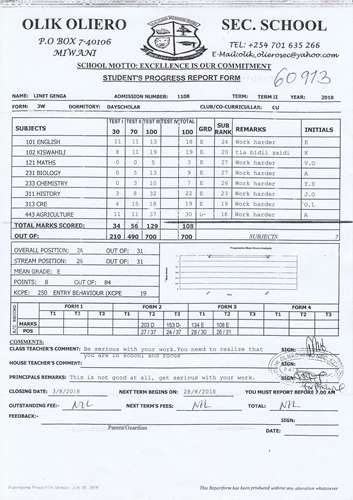 OLIK OLIERO SEC. SCHOOL
P.O BOX 7-40106 TEL: +254 701 635 266
MIWANI E-Mail:olik_olierosec@yahoo.com
SCHOOL MOTTO: EXCELLENCE IS OUR COMMITMENT
STUDENT'S PROGRESS REPORT FORM 60913
NAME: LINET GENGA ADMISSION NUMBER: 1108 TERM: TERM II YEAR: 2018
FORM: 3W DORMITORY: DAYSCHOLAR CLUB/CO-CURRICULAR: CU
SUBJECTS TEST I TEST II TEST IV TOTAL GRD SUB RANK REMARKS INITIALS
30 70 100 100
101 ENGLISH 11 11 13 18 E 24 Work harder E
102 KISWAHILI 8 11 19 19 E 20 tia bidii zaidi K
121 MATHS 0 0 5 3 E 27 Work harder V.O
231 BIOLOGY 0 5 13 9 E 27 Work harder A
233 CHEMISTRY 0 3 10 7 E 26 Work harder Y.S
311 HISTORY 3 8 32 22 E 23 Work harder J.O
313 CRE 4 15 18 19 E 19 Work harder O.L
443 AGRICULTURE 11 11 37 30 D- 18 Work harder A
TOTAL MARKS SCORED: 34 56 129 108
OUT OF: 210 490 700 700 SUBJECTS 7
OVERALL POSITION: 26 OUT OF: 31
STREAM POSITION: 26 OUT OF: 31
MEAN GRADE: E
POINTS: 8 OUT OF: 84
KCPE: 250 ENTRY BEHAVIOUR (KCPE 19
FORM 1 FORM 2 FORM 3 FORM 4
T1 T2 T3 T1 T2 T3 T1 T2 T3 T1 T2 T3
MARKS 203 D 153 D- 134 E 108 E
POS 27 / 37 24 / 37 28 / 30 26 / 31
COMMENTS:
CLASS TEACHER'S COMMENT: Be serious with your work.You need to realise that SIGN:
you are in school and focus
HOUSE TEACHER'S COMMENT: SIGN:
PRINCIPALS REMARKS: This is not good at all, get serious with your work. SIGN:
CLOSING DATE: 3/8/2018 NEXT TERM BEGINS ON: 28/8/2018 YOU MUST REPORT BEFORE 7.00 AM
OUTSTANDING FEE: NIL NEXT TERM'S FEES: NIL TOTAL: NIL
FEEDBACK:- SIGN:
Parent/Guardian
DATE:
This Reportform has been produced without any alteration whatsoever